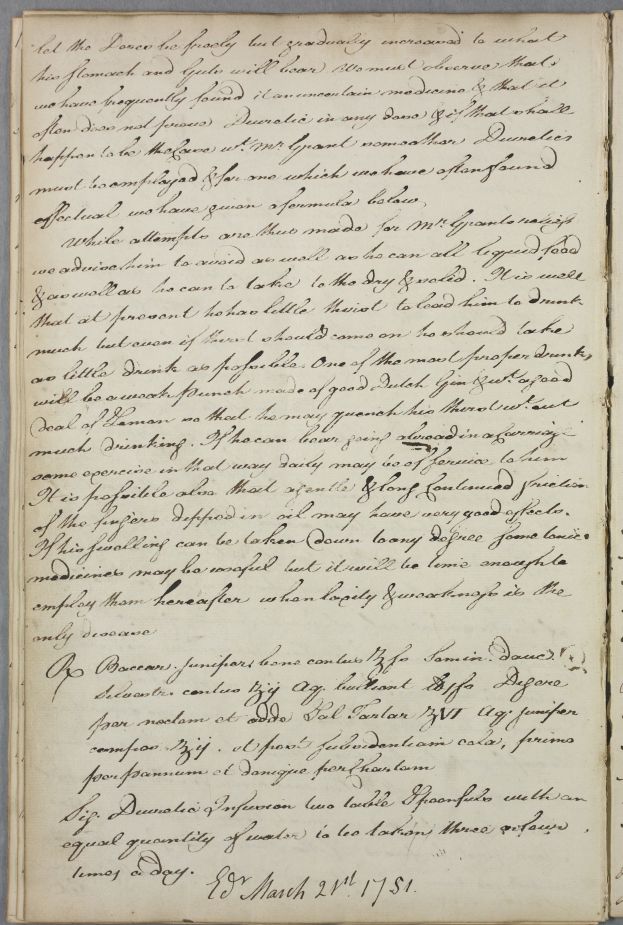 let the Doses be freely but gradually increased to what
his stomach and Guts will bear. We must observe that
we have frequently found it an uncertain medicine & that it
often does not prove Diuretic in any dose & if that shall
happen to be the Case wt. Mr Grant some other Diuretics
must be employed & for one which we have often found
effectual we have given a formula below.
While attempts are thus made for Mr. Grants relief
we advise him to avoid as well as he can all liquid food
& as well as he can to take to the dry & solid. It is well
that at present he has little thirst to lead him to drink
much but even if thirst should come on he should take
as little drink as possible. One of the most proper drinks
will be a weak punch made of good Dutch Gin & wt. a good
deal of Lemon so that he may quench his thirst wt. out
much drinking. If he can bear going abroad in a Carriage
some exercise in that way daily may be of service to him
It is possible also that a gentle & long continued friction
of the fingers dipped in oil may have very good effects.
If his swelling can be taken down to any degree some tonic
medicines may be useful but it will be time enough to
employ them hereafter when laxity & weakness is the
only disease
℞ Baccar. juniper. bene contus ℥ss Semin. dauc.
Silvestr. contus ʒij Aq. bullient ℔ss Digere
per noctem et adde Sal Tartar ʒVI Aq. juniper
compos ℥ij. et post subsidentiam cola, primo
per pannum et denique per Chartam
Sig. Diuretic Infusion two table Spoonfuls with an
equal quantity of water to be taken three or four
times a day.
Edr March 21st. 1781.